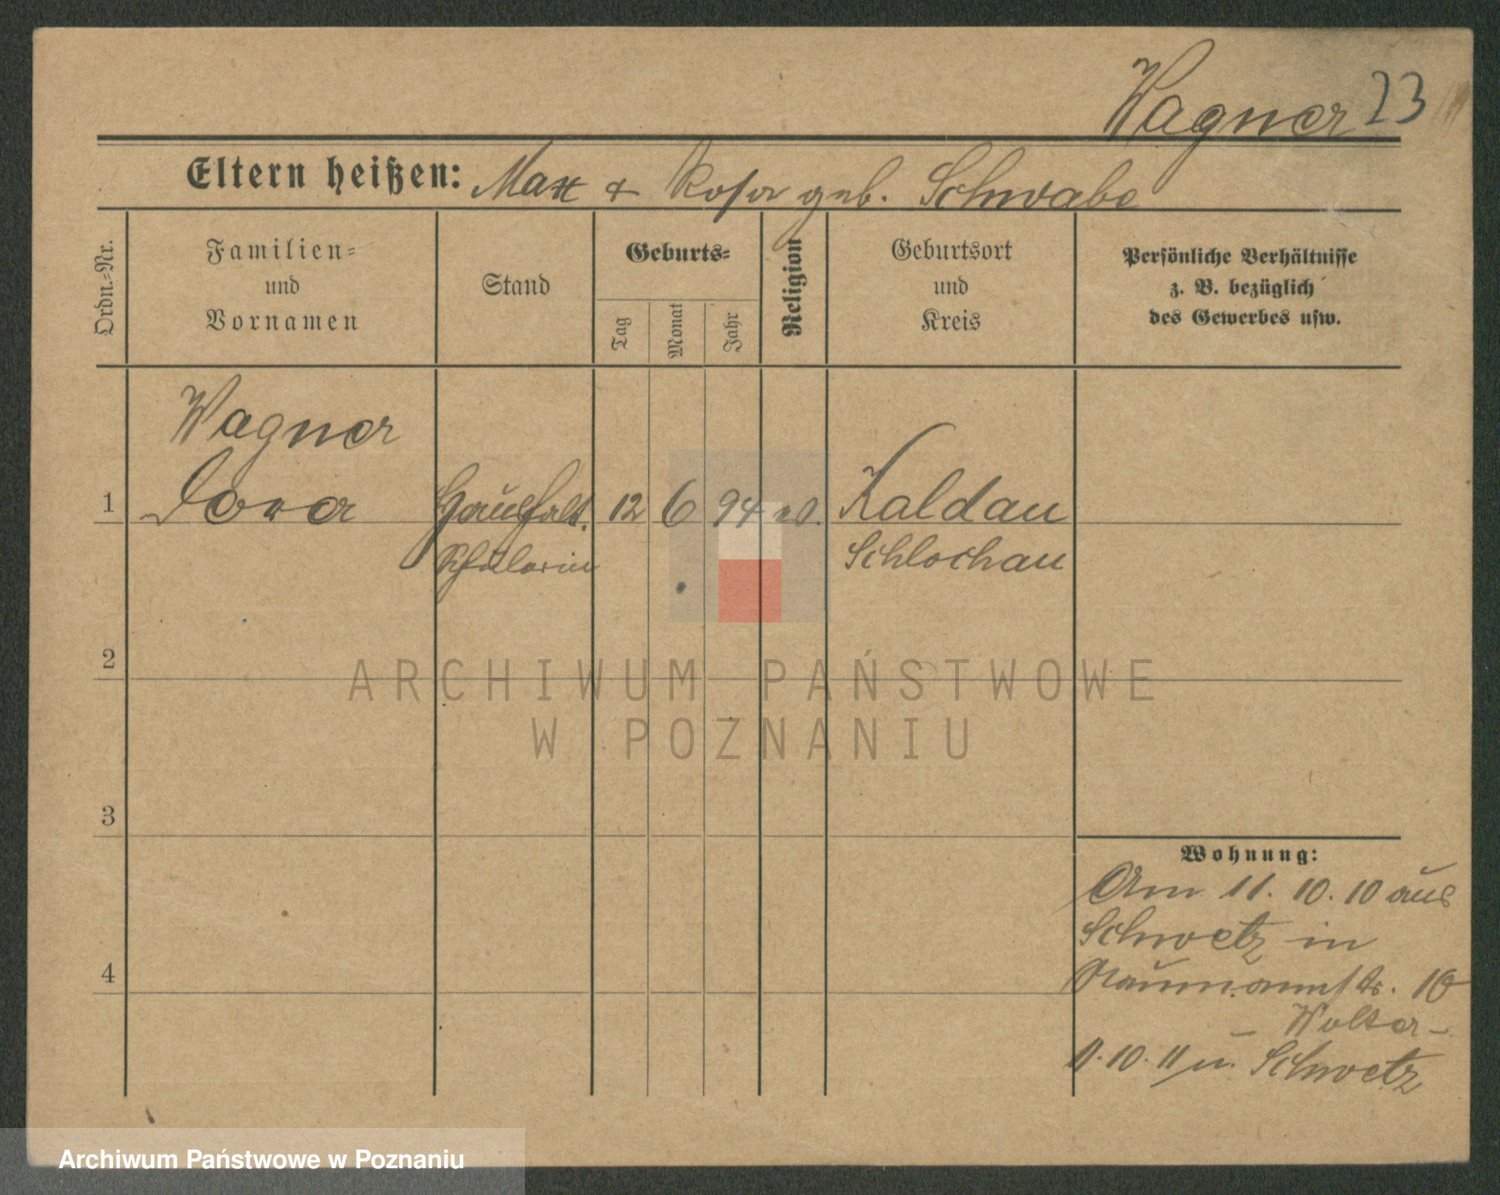 Wagner 23
Eltern heißen: Max & Rosa geb. Schwabe
Ordn.-Nr.
Familien-
und
Vornamen
Stand
Geburts-
Tag
Monat
Jahr
Religion
Geburtsort
und
Kreis
Persönliche Verhältnisse
z. B. bezüglich
des Gewerbes usw.
Wagner
1 Dora Haushalt. 12 6 94 Kaldau
Schülerin Schlochau
2
ARCHIWUM PAŃSTWOWE
W POZNANIU
3
Wohnung:
Am 11. 10. 10 aus
Schwetz in
Naumannstr. 10
- Wolter -
11. 10. 11 n. Schwetz
4
Archiwum Państwowe w Poznaniu